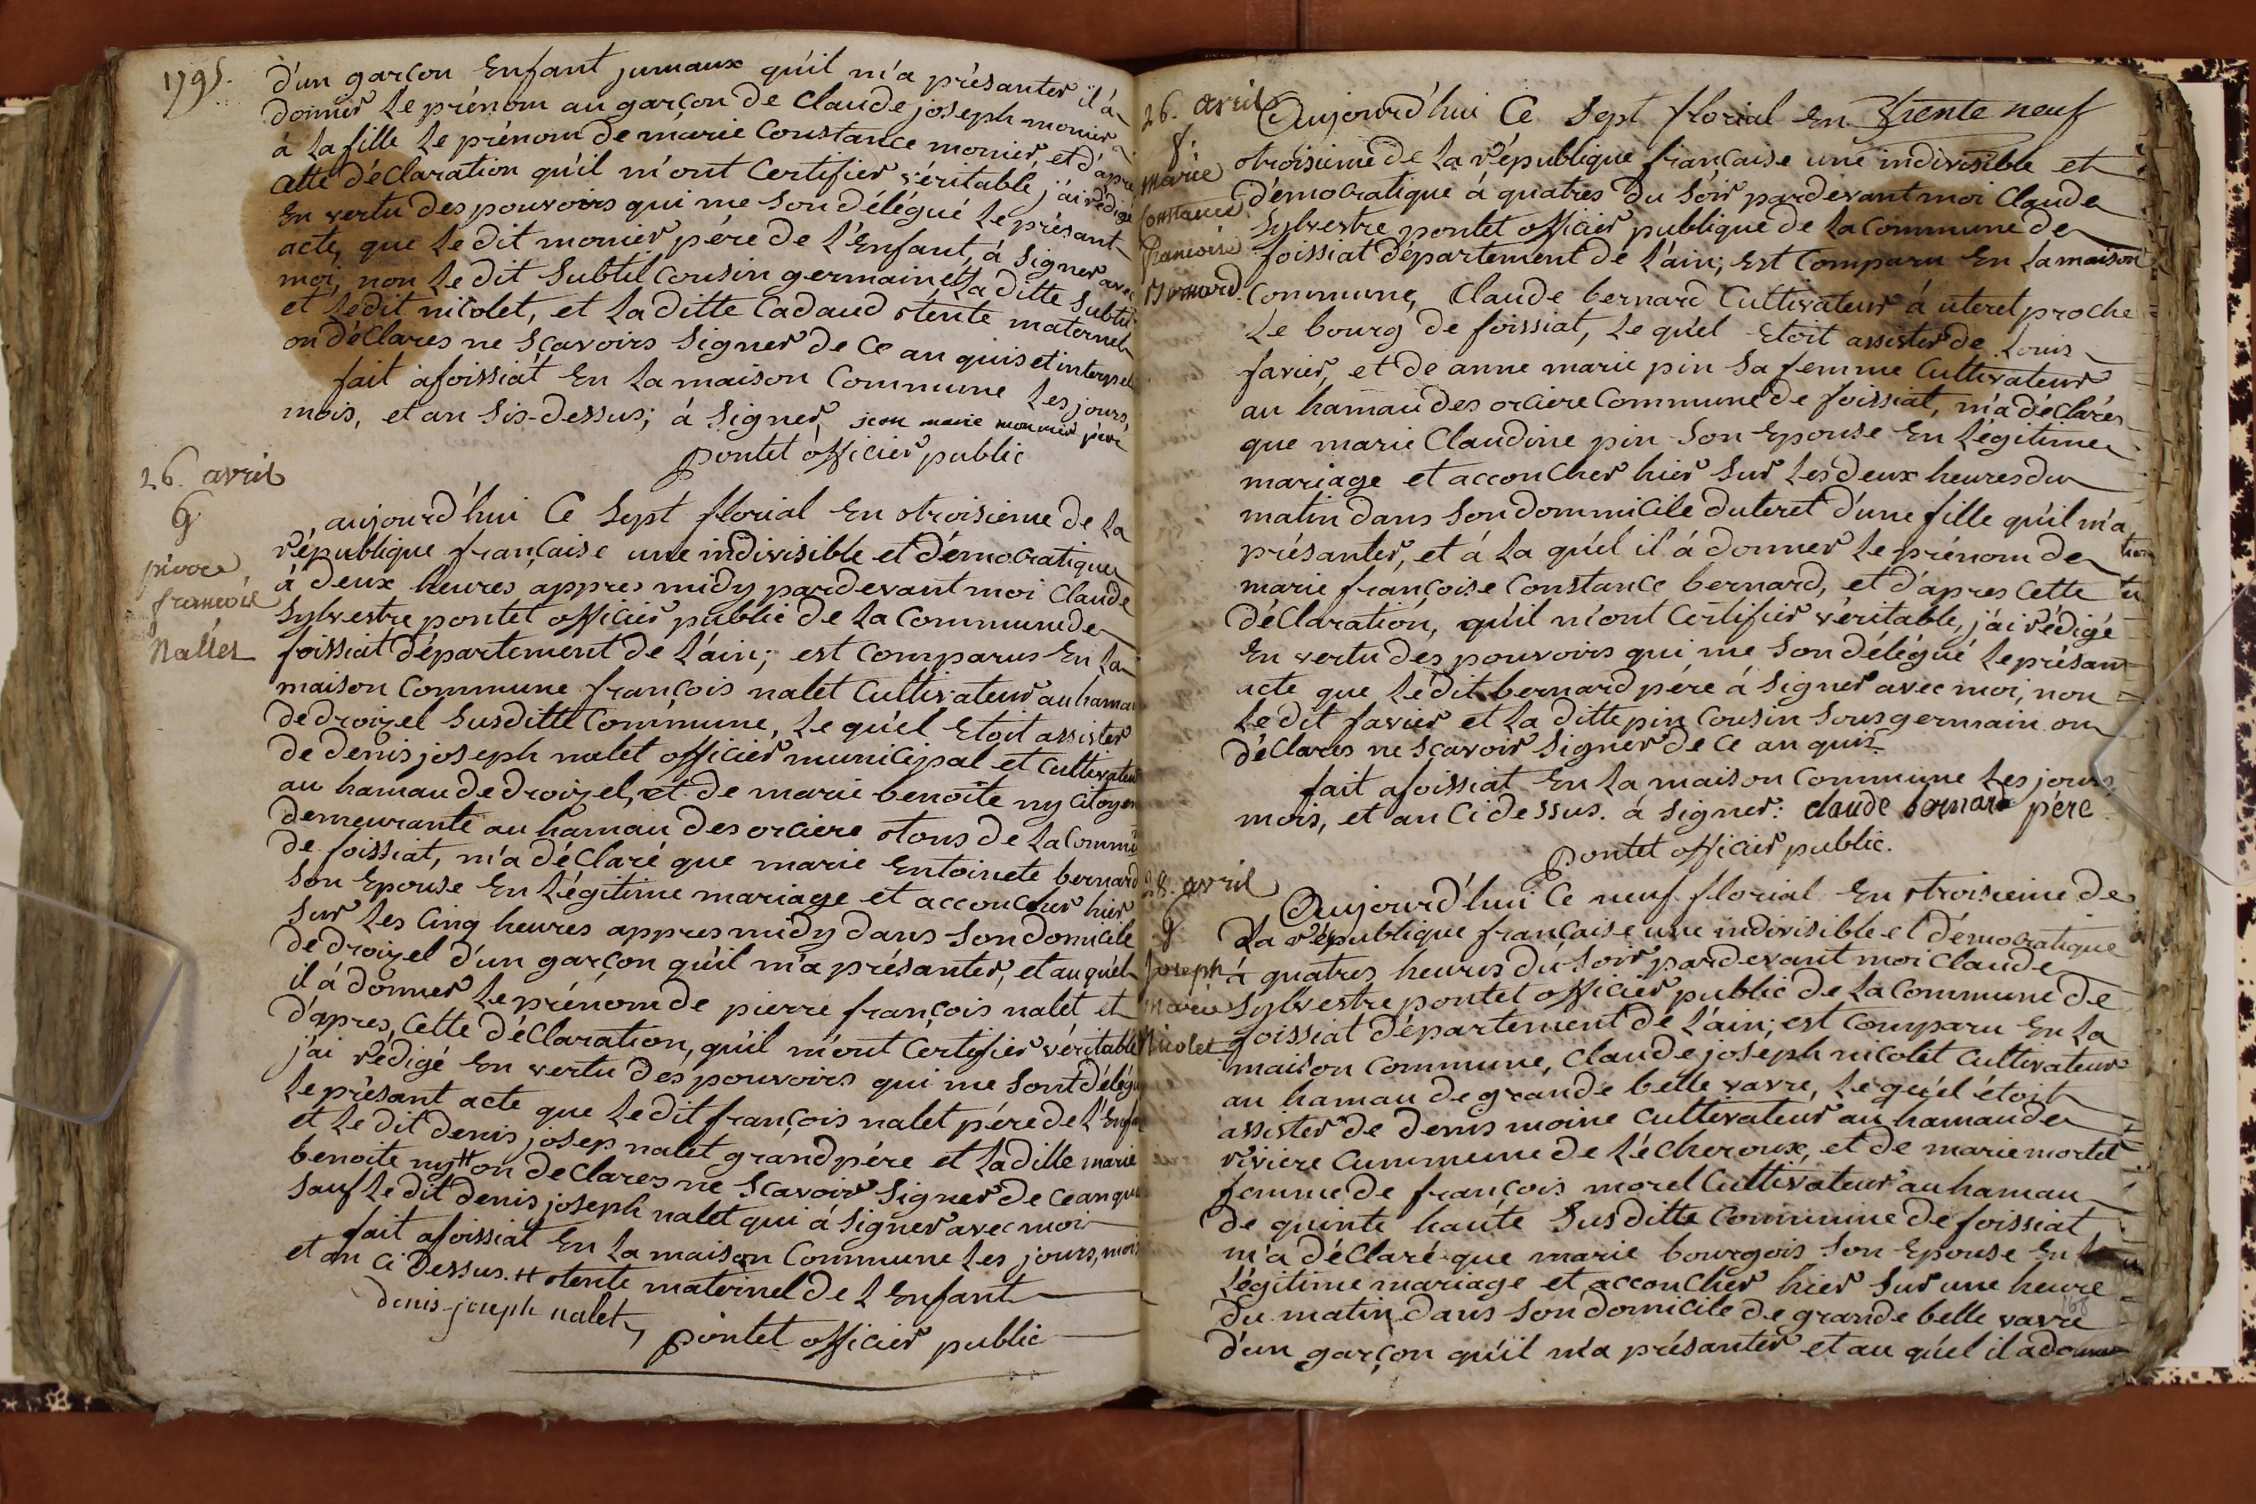 1795.
d'un garçon Enfant jumaux qu'il m'a présanter il à
donner Le prénom au garçon de claude joseph monier
à La fille Le prénom de marie Constance monier, et d'apre
Cette déClaration qu'il m'ont Certifier véritable j'ai rédigé
En vertu des pouvoirs qui me Son délégué Le présant
acte, que Le dit monier pére de L'Enfant, à Signer avec
moi, non Le dit Subtil Cousin germain, et La ditte Subtil
et Ledit nicolet, et La ditte Cadaud tente maternel
on déClares ne Sçavoirs Signer de Ce an quis et interpel
fait afoissiat En La maison Commune Les jours,
mois, et an Sis-dessus; à Signer, jean marie monnier père
pontet officier public
26. avril
6
pierre
francois
Nallet
aujourd'hui Ce Sept florial En troisieme de La
république française une indivisible et démocratique
à deux heures appres midy pardevant moi Claude
Sylvestre pontet officier public de La Commune de
foissiat département de L'ain; est Comparus En La
maison Commune françois nalet Cultivateur au hamau
de droizel Susditte Commune, Le qu'el Etoit assister
de denis joseph nalet officier municipal et Cultivateur
au hamau de droizel, et de marie benoite ny Citoyen
demeurante au hamau des orciere tous de La Commu
de foissiat, m'a déClaré que marie Entoinete bernard
Son Epouse En Légitime mariage et accoucher hier
Sur Les Cinq heures appres midy dans Son domicile
de droizel d'un garçon qu'il m'a présanter, et au qu'el
il à donner Le prénom de pierre françois nalet et
d'apres, Cette déClaration, qu'il m'ont Certifier véritable
j'ai rédigé En vertu des pouvoirs qui me Sont délégu
Le présant acte que Ledit françois nalet pére de L'Enfan
et Le dit denis josep nalet grand pére et Laditte marie
benoite ny # on déClares ne Sçavoir Signer de Ce an qui
Sauf Le dit denis joseph nalet qui à Signer avec moi
fait afoissiat En La maison Commune Les jours, mois
et an Ci Dessus. # tente maternel de L'Enfant
denis-joseph nalet
pontet officier public
26. avril
8.
Marie
Constance
francoise
Bernard.
Aujourd'hui Ce Sept florial En trente neuf
troisieme de La république française une indivisible et
démocratique à quatres du Soir pardevant moi Claude
Sylvestre pontet officier publique de La Commune de
foissiat département de L'ain; Est Comparu En La maison
Commune, Claude bernard Cultivateur à uteret proche
Le bourg de foissiat, Le qu'el Etoit assister de Louis
favier, et de anne marie pin Sa femme Cultivateur
au hamau des orciere Commune de foissiat, m'a déClarés
que marie Claudine pin Son Epouse En Légitime
mariage et accoucher hier Sur Les deux heures du
matin dans Son dommicile duteret d'une fille qu'il m'a
présanter, et à La qu'el il à donner Le prénom de
marie françoise Constance bernard, et d'apres Cette
déClaration, qu'il m'ont Certifier véritable, j'ai rédigé
En vertu des pouvoirs qui me Son délégué Le présant
acte que Ledit bernard pére à Signer avec moi, non
Le dit favier et La ditte pin Cousin Sousgermain on
déClares ne Sçavoir Signer de Ce an quis
fait afoissiat En La maison Commune Les jours,
mois, et an Ci dessus. à Signer: claude bernard pére
Pontet officier public.
28. avril
9
Joseph
Marie
Nicolet
Aujourd'hui Ce neuf florial En troisieme de
La république française une indivisible et démocratique
à quatres heures du Soir pardevant moi Claude
Sylvestre pontet officier public de La Commune de
foissiat département de L'ain; est Comparu En La
maison Commune, Claude joseph nicolet Cultivateur
au hamau de grande belle vavre, Le qu'el étoit
assister de denis moine Cultivateur au hamau de
riviere Cummune de L'écheroux, et de marie mortet
femme de françois morel Cultivateur au hamau
de quinte haute Susditte Commune de foissiat
m'a déClaré que marie bourgois Son Epouse En
Légitime mariage et accoucher hier Sur une heure
du matin dans Son domicile de grande belle vavre
d'un garçon qu'il m'a présanter et au qu'el il a donner
168